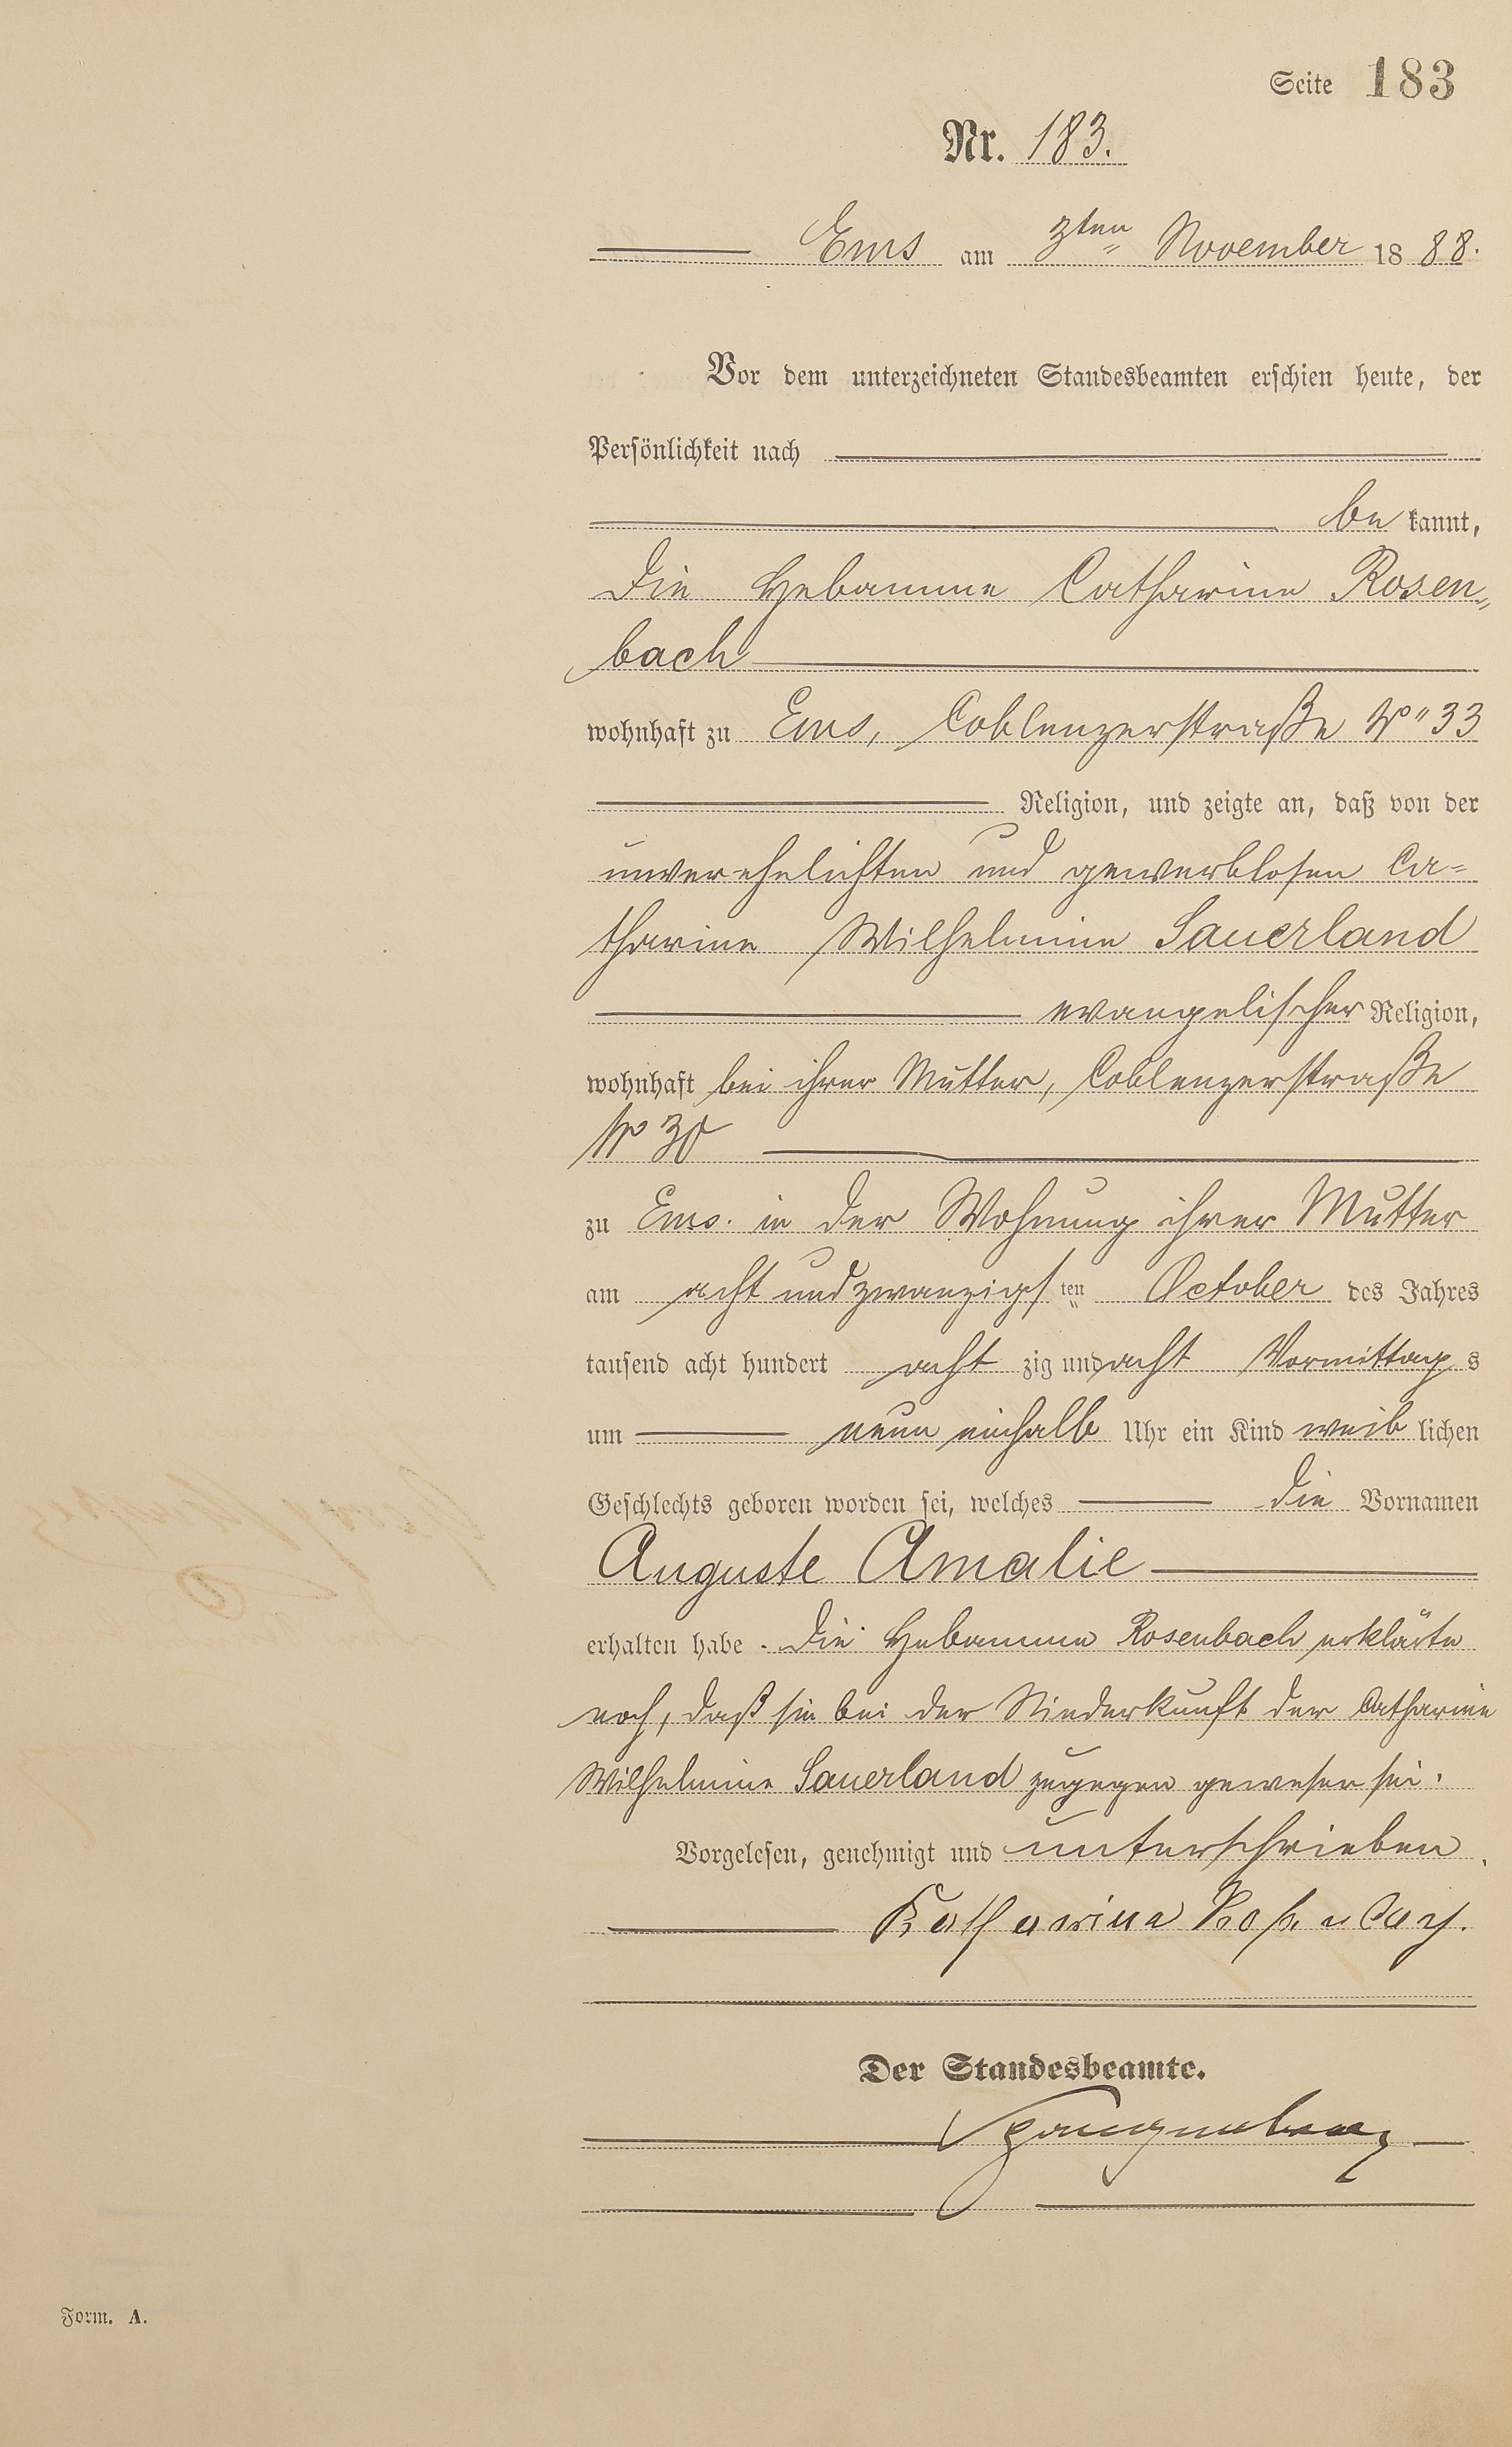 Seite 183
Nr. 183.
Ems am 3ten November 1888.
Vor dem unterzeichneten Standesbeamten erschien heute, der
Persönlichkeit nach
be kannt,
die Hebamme Catharine Rosen-
bach
wohnhaft zu Ems, Coblenzerstraße No 33
Religion, und zeigte an, daß von der
unverehelichten und gewerblosen Ca-
tharine Wilhelmine Sauerland
evangelischer Religion,
wohnhaft bei ihrer Mutter, Coblenzerstraße
No
zu Ems. in der Wohnung ihrer Mutter
am acht und zwanzigs ten October des Jahres
tausend acht hundert acht zig und acht Vormittag s
um neun einhalb Uhr ein Kind weib lichen
Geschlechts geboren worden sei, welches die Vornamen
Auguste Amalie
erhalten habe. Die Hebamme Rosenbach erklärte
noch, daß sie bei der Niederkunft der Catharine
Wilhelmine Sauerland zugegen gewesen sei.
Vorgelesen, genehmigt und unterschrieben.
Katharina
Der Standesbeamte.
Form. A.